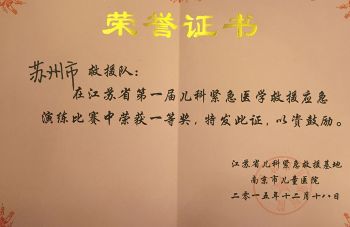 荣誉证书
苏州市 救援队：
在江苏省第一届儿科紧急医学救援应急
演练比赛中荣获一等奖，特发此证，以资鼓励。
江苏省儿科紧急救援基地
南京市儿童医院
二零一五年十二月十八日